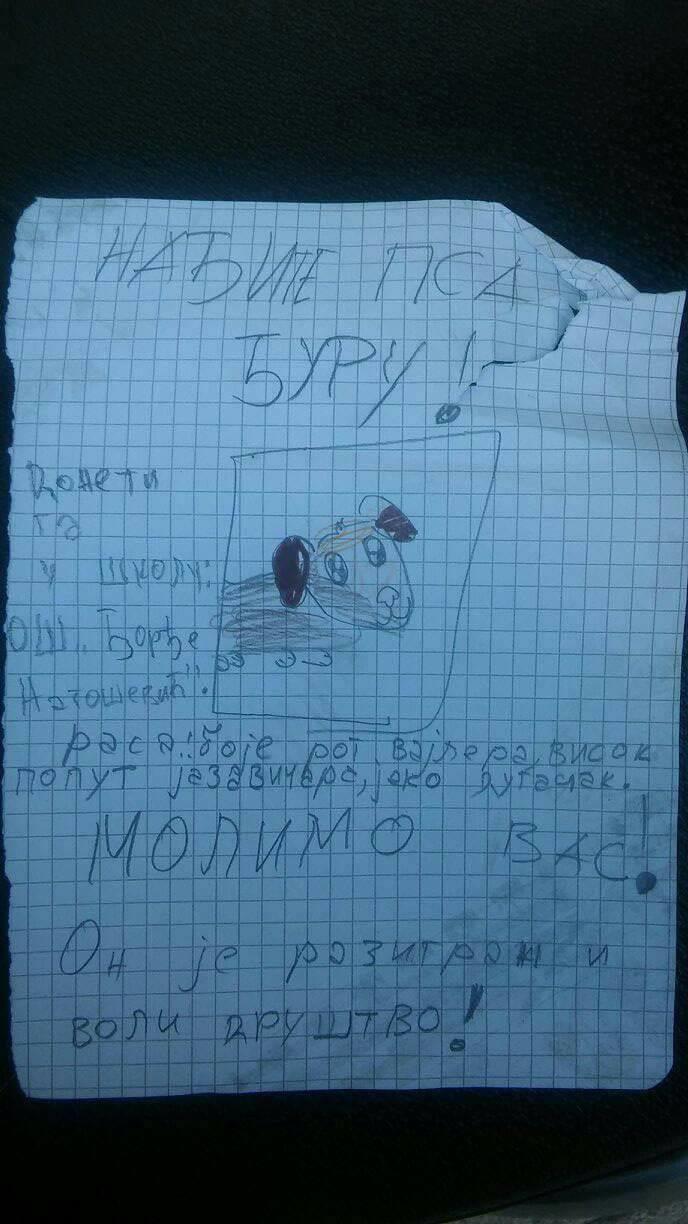 НАЂИТЕ ПСА
БУРУ!
Донети
га
у школу:
ОШ. Ђорђе
Натошевић".
раса: боје рот вајлера, висок
попут јазавичара, јако дугачак.
МОЛИМО ВАС!
Он је разигран и
воли друштво!